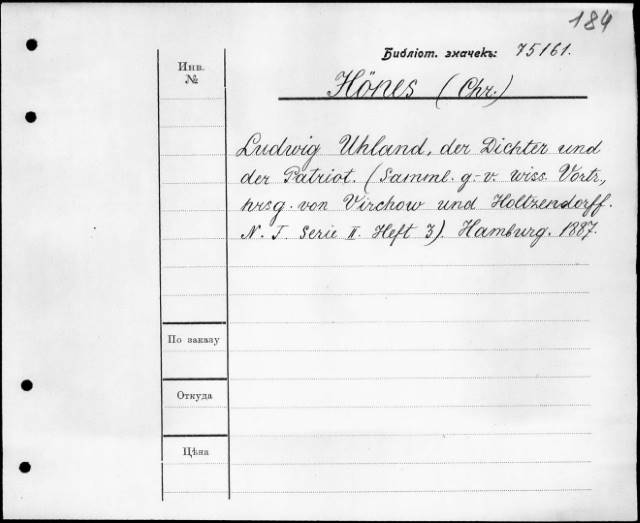 184
Библіот. значекъ: 75161.
Инв.
№
Hönes (Chr.)
Ludwig Uhland, der Dichter und
der Patriot. (Samml. g.-v. wiss. Vortr.,
hrsg. von Virchow und Holtzendorff.
N. F. Serie II. Heft 3). Hamburg. 1887.
По заказу
Откуда
Цѣна